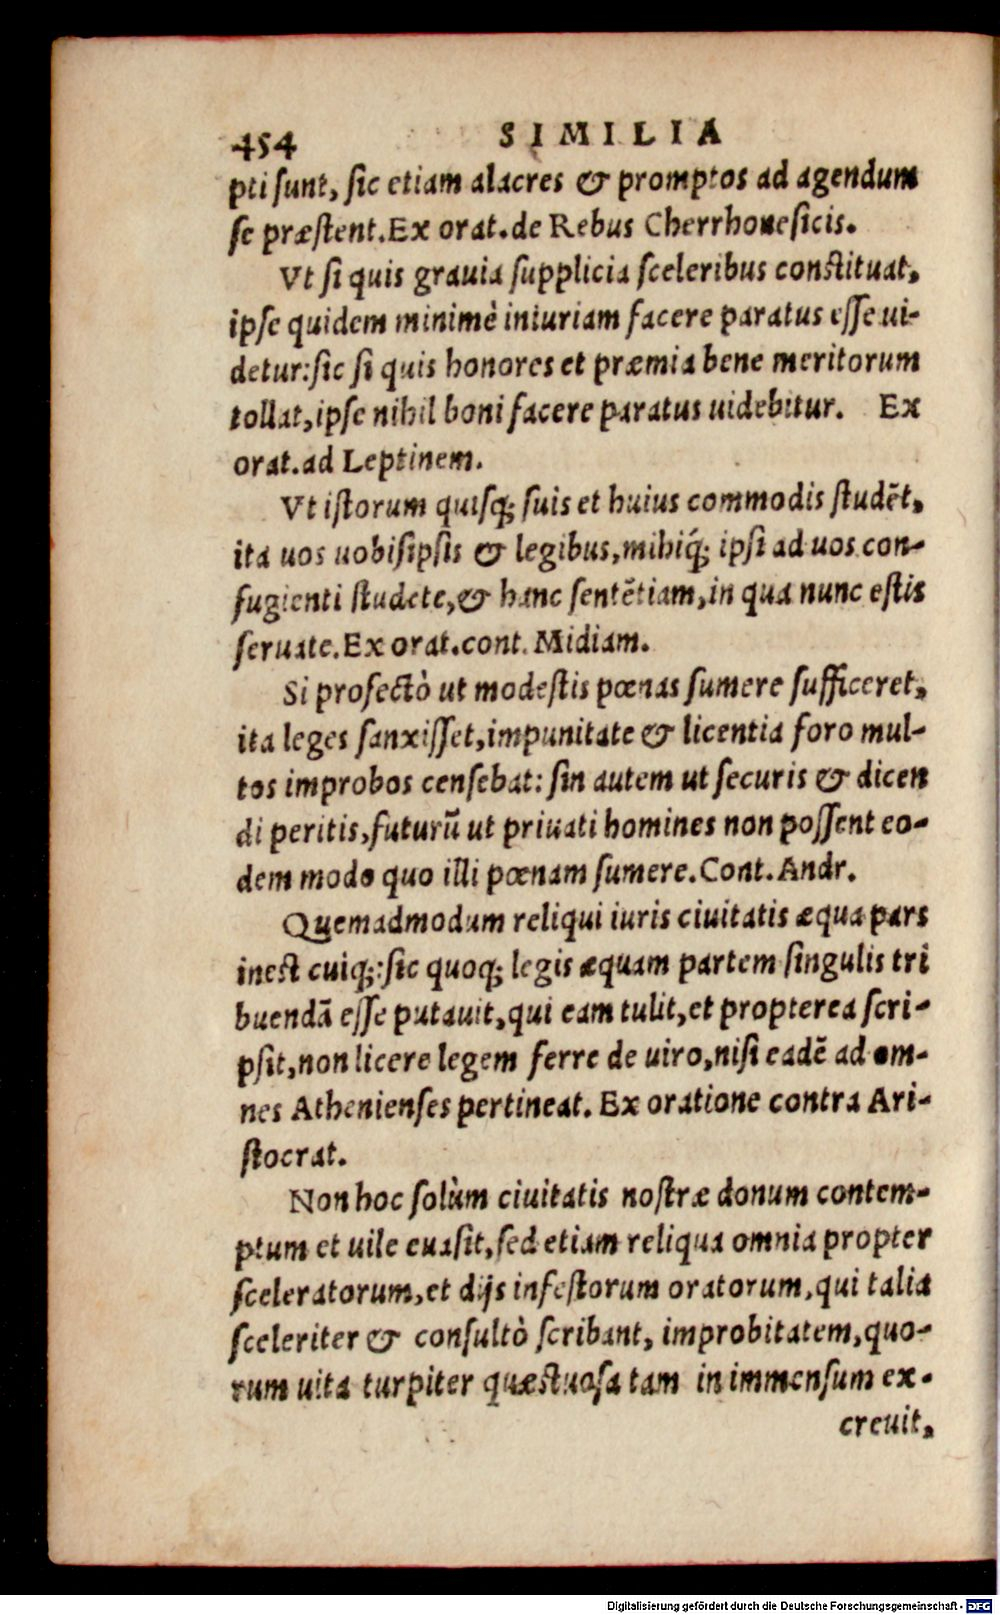 454 SIMILIA
pti sunt, sic etiam alacres & promptos ad agendum
se præstent. Ex orat. de Rebus Cherrhonesicis.
Vt si quis grauia supplicia sceleribus constituat,
ipse quidem minimè iniuriam facere paratus esse ui-
detur: sic si quis honores et præmia bene meritorum
tollat, ipse nihil boni facere paratus uidebitur. Ex
orat. ad Leptinem.
Vt istorum quisq; suis et huius commodis studẽt,
ita uos uobisipsis & legibus, mihiq́; ipsi ad uos con-
fugienti studete, & hanc sentẽtiam, in qua nunc estis
seruate. Ex orat. cont. Midiam.
Si profectò ut modestis pœnas sumere sufficeret,
ita leges sanxisset, impunitate & licentia foro mul-
tos improbos censebat: sin autem ut securis & dicen
di peritis, futurũ ut priuati homines non possent eo-
dem modo quo illi pœnam sumere. Cont. Andr.
Quemadmodum reliqui iuris ciuitatis æqua pars
inest cuiq;: sic quoq; legis æquam partem singulis tri
buendã esse putauit, qui eam tulit, et propterea scri-
psit, non licere legem ferre de uiro, nisi eadẽ ad om-
nes Athenienses pertineat. Ex oratione contra Ari-
stocrat.
Non hoc solùm ciuitatis nostræ donum contem-
ptum et uile euasit, sed etiam reliqua omnia propter
sceleratorum, et dijs infestorum oratorum, qui talia
sceleriter & consultò scribant, improbitatem, quo-
rum uita turpiter quæstuosa tam in immensum ex-
creuit,
Digitalisierung gefördert durch die Deutsche Forschungsgemeinschaft - DFG